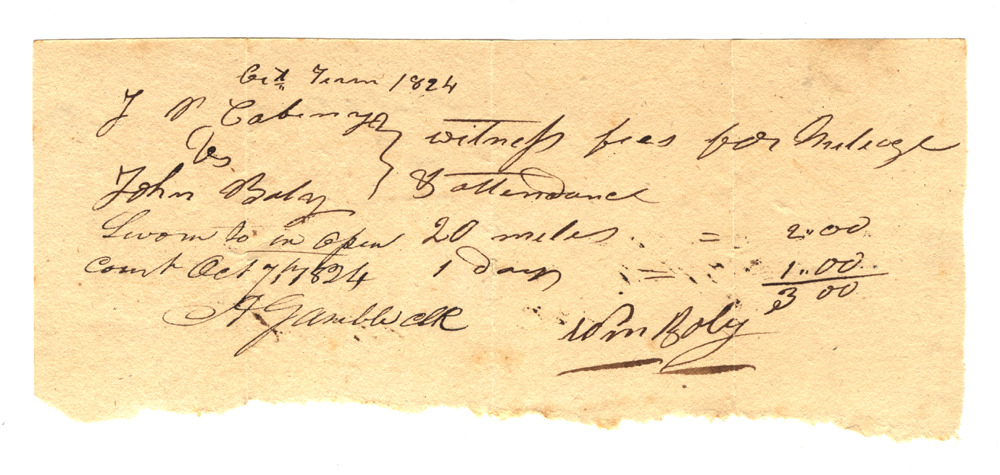 Oct Term 1824
J P Cabeny
Vs. witness fees for Mileage
John Baly & attendance
Sworn to in open 20 miles. = 2.00
court Oct 7th 1824 1 day = 1.00
3 00
A Gamble clk Wm Roby